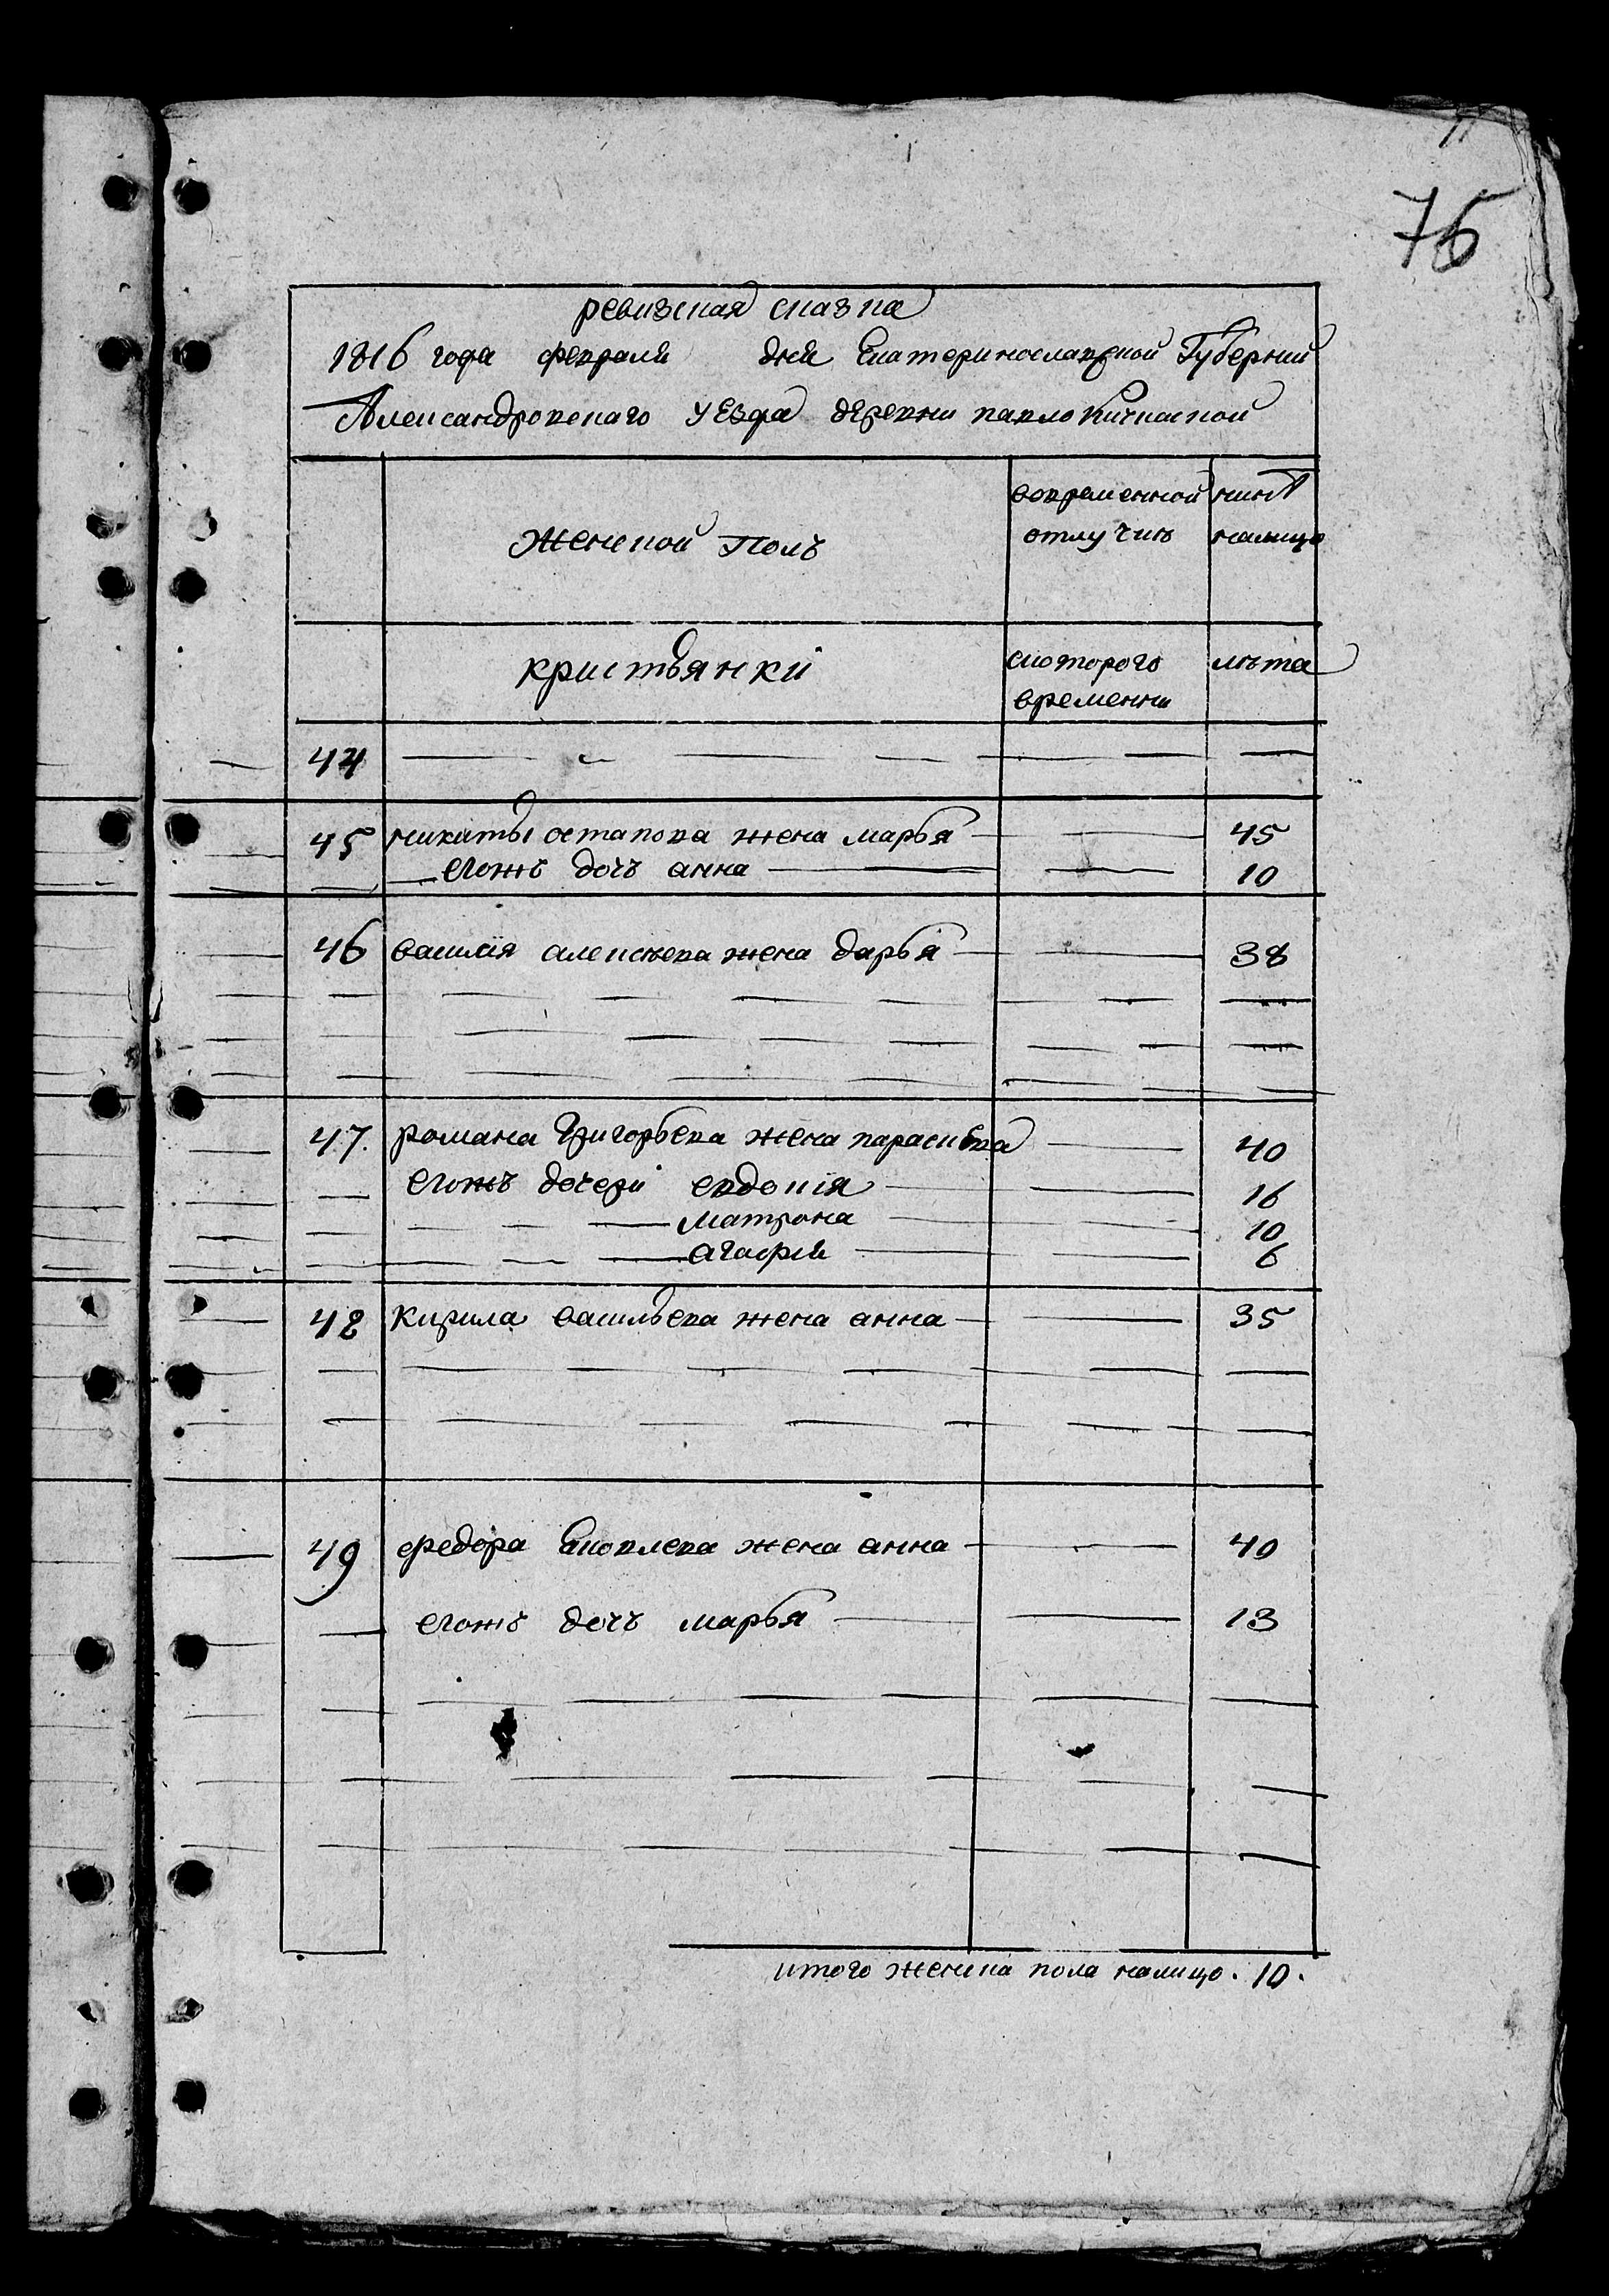 76
ревизская сказка
1816 года февраля дня Екатеринославской Губернии
Александровскаго уезда деревни павло Кичкаской
Женской Полъ
вовременной отлучкѣ
нынѣ налицо
кристьянкі
скоторого временни
лѣта
44
45 никиты остапова жена марья 45
егожъ дочъ анна 10
46 василія алексѣева жена дарья 38
47. романа Григорьева жена парасковья 40
егожъ дочери евдокія 16
матрона 10
агафія 6
48 Кирила васильева жена анна 35
49 федора Яковлева жена анна 40
егожъ дочъ марья 13
итого женска пола налицо. 10.